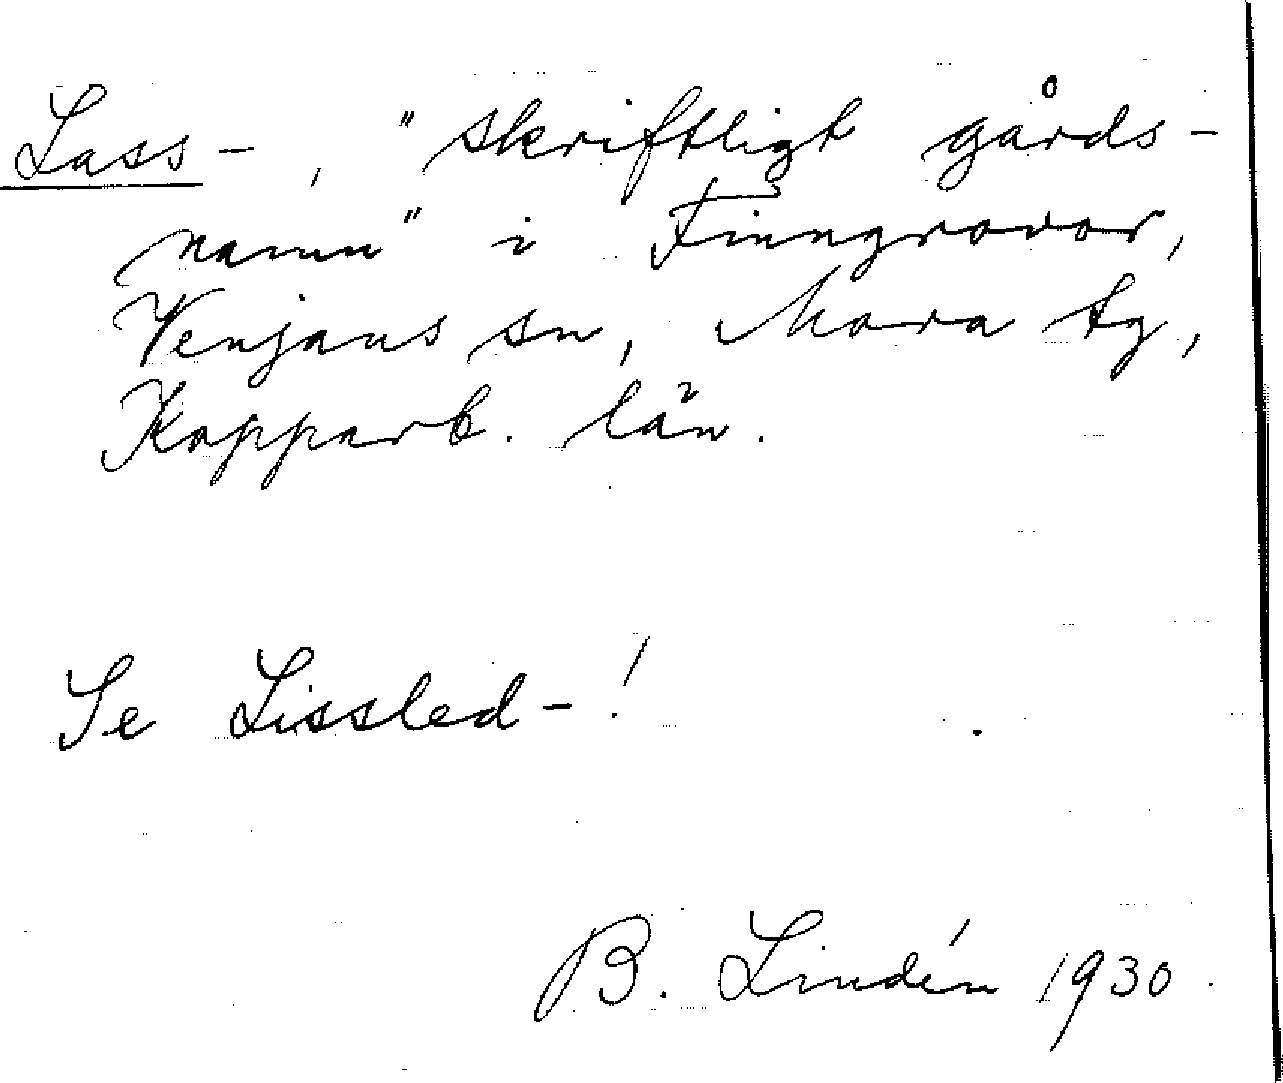 Lass-, "skriftligt gårds-
namn" i Finngrovor,
Venjans sn, Mora tg,
Kopparb. län.
Se Lissled-!
B. Lindén 1930.